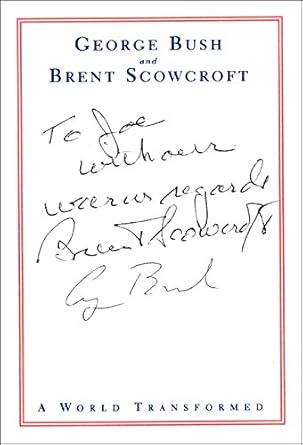 GEORGE BUSH
and
BRENT SCOWCROFT
To Joe
with our
warm regards
Brent Scowcroft
G Bush
A WORLD TRANSFORMED